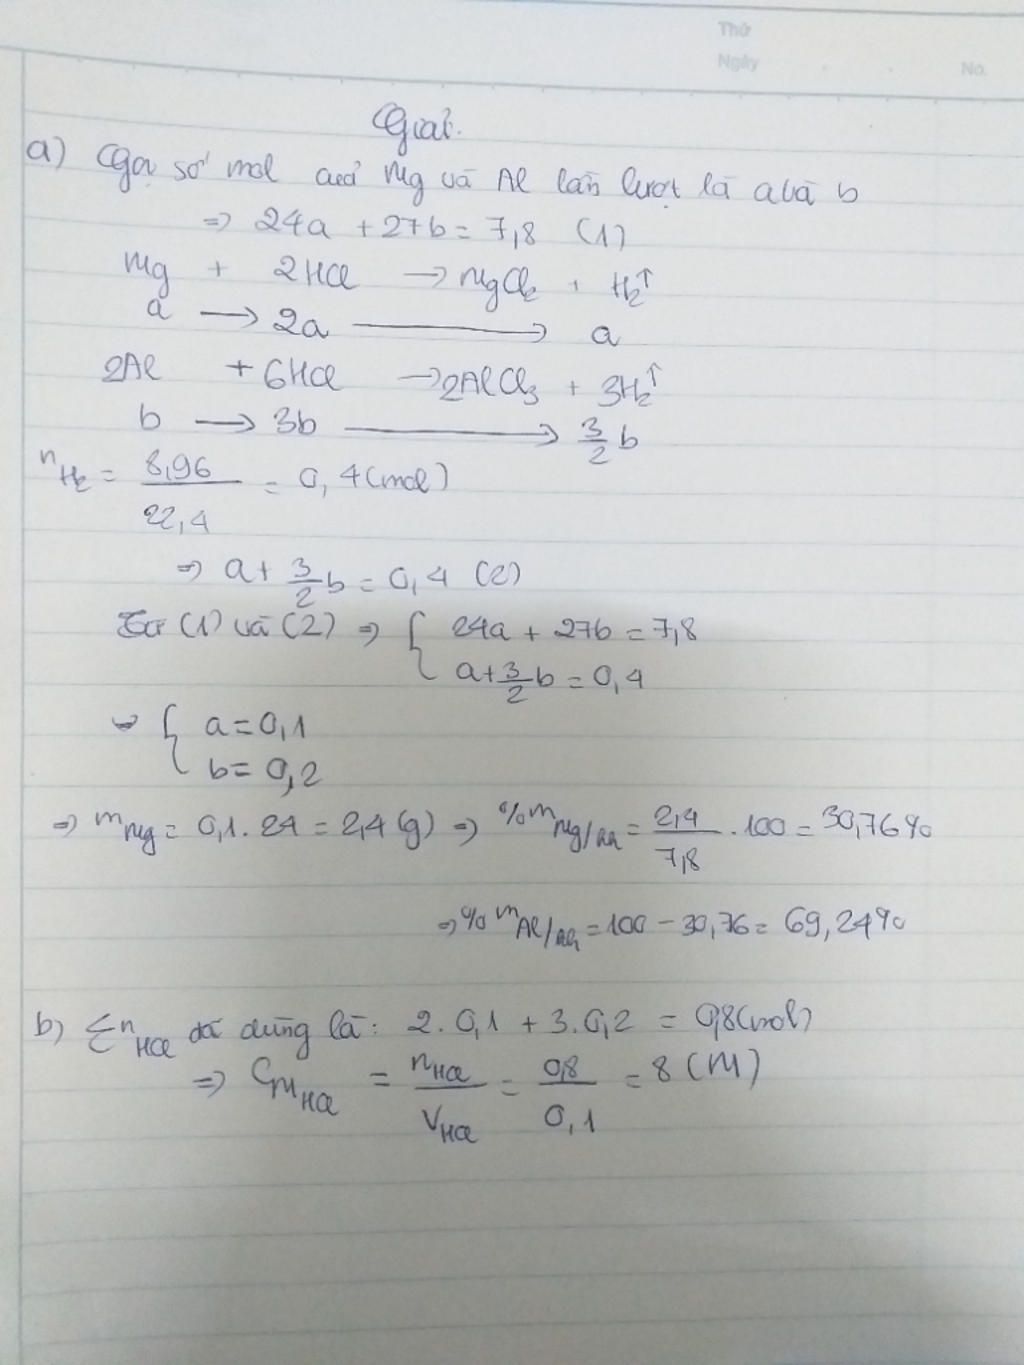 Thứ
Ngày
No.
Giải.
a) Gọi số mol của Mg và Al lần lượt là a và b
=> 24a + 27b = 7,8 (1)
Mg + 2HCl → MgCl₂ + H₂↑
a → 2a → a
2Al + 6HCl → 2AlCl₃ + 3H₂↑
b → 3b → 3/2 b
n H₂ = 8,96 / 22,4 = 0,4 (mol)
=> a + 3/2 b = 0,4 (2)
Từ (1) và (2) => { 24a + 27b = 7,8
a + 3/2 b = 0,4
{ a = 0,1
b = 0,2
=> m Mg = 0,1 . 24 = 2,4 (g) => % m Mg/hh = 2,4 / 7,8 . 100 = 30,76%
=> % m Al/hh = 100 - 30,76 = 69,24%
b) Σ n HCl đã dùng là: 2 . 0,1 + 3 . 0,2 = 0,8 (mol)
=> C M HCl = n HCl / V HCl = 0,8 / 0,1 = 8 (M)